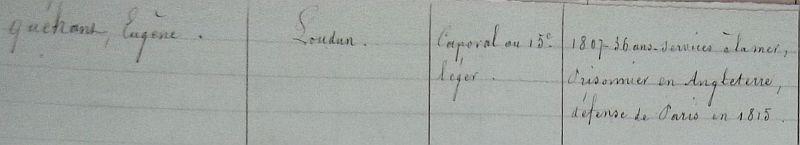 quehans, Eugène.
Loudun.
Caporal au 15e
léger.
1807-36 ans. services à la mer,
Prisonnier en Angleterre,
défense de Paris en 1815.